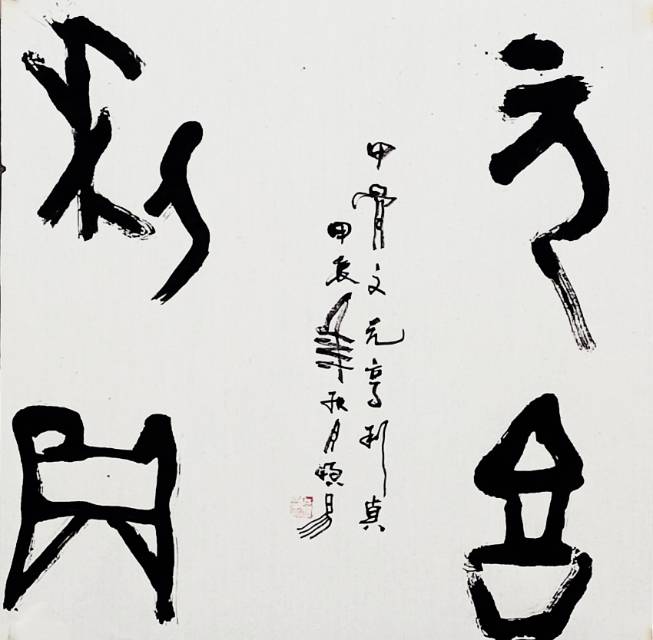 元亨
利贞
甲骨文元亨利貞
甲辰年秋月顺易